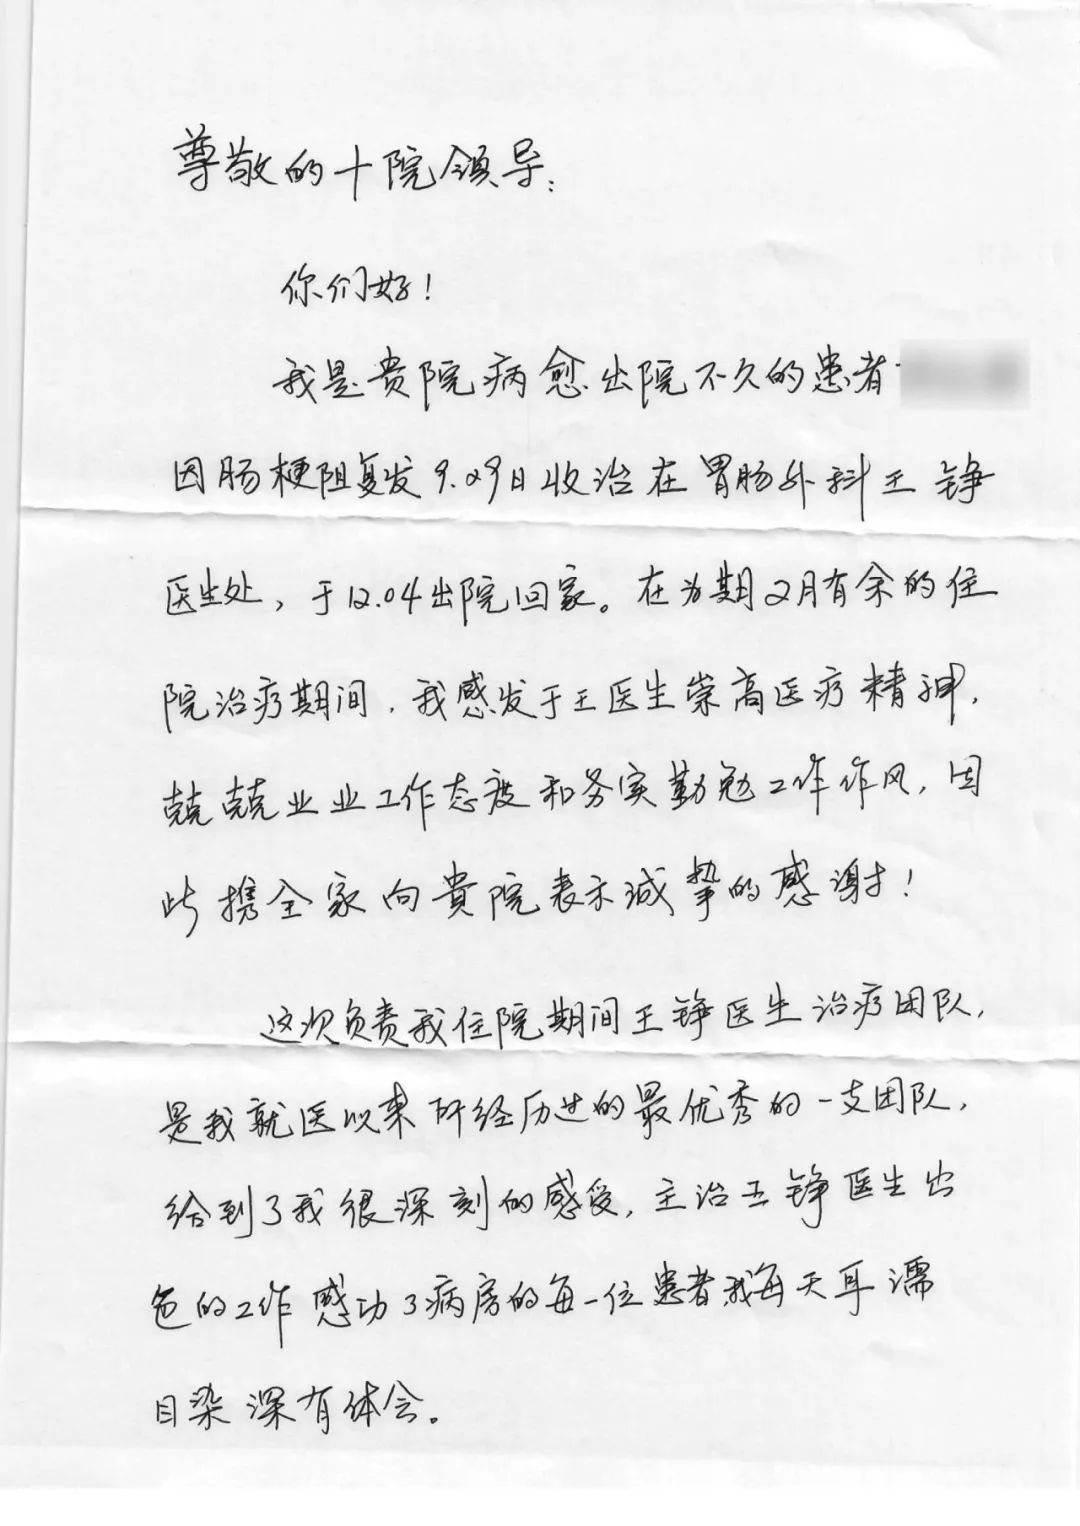 尊敬的十院领导：
你们好！
我是贵院病愈出院不久的患者
因肠梗阻复发9.29日收治在胃肠外科王铮
医生处，于12.04出院回家。在为期2月有余的住
院治疗期间，我感发于王医生崇高医疗精神，
兢兢业业工作态度和务实勤勉工作作风，因
此携全家向贵院表示诚挚的感谢！
这次负责我住院期间王铮医生治疗团队，
是我就医以来所经历过的最优秀的一支团队，
给到了我很深刻的感受，主治王铮医生出
色的工作感动了病房的每一位患者我每天耳濡
目染深有体会。